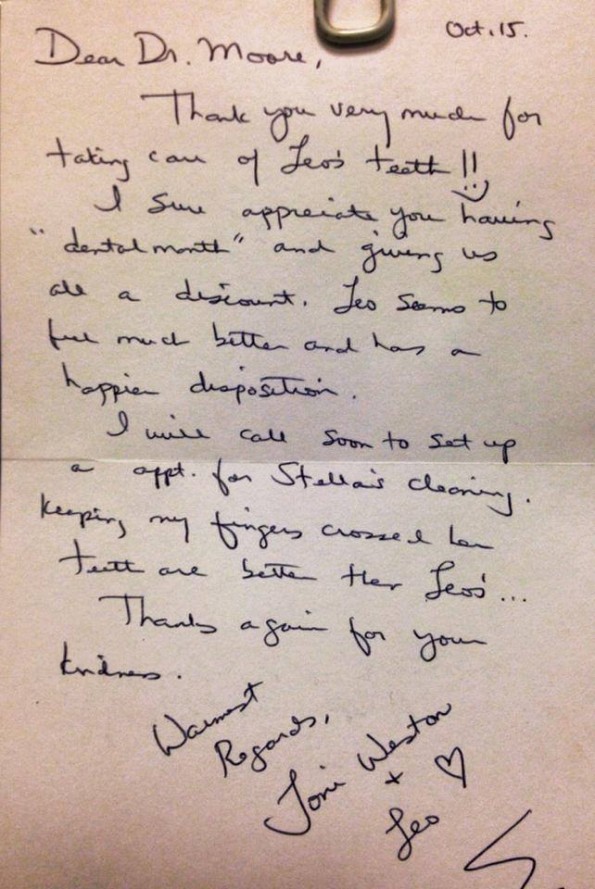 Oct. 15.
Dear Dr. Moore,
Thank you very much for
taking care of Leo's teeth!!
I sure appreciate you having
"dental month" and giving us
all a discount. Leo seems to
feel much better and has a
happier disposition.
I will call soon to set up
a appt. for Stella's cleaning.
Keeping my fingers crossed her
teeth are better then Leo's...
Thanks again for your
kindness.
Warmest
Regards,
Toni Weston
+ ♡
Leo